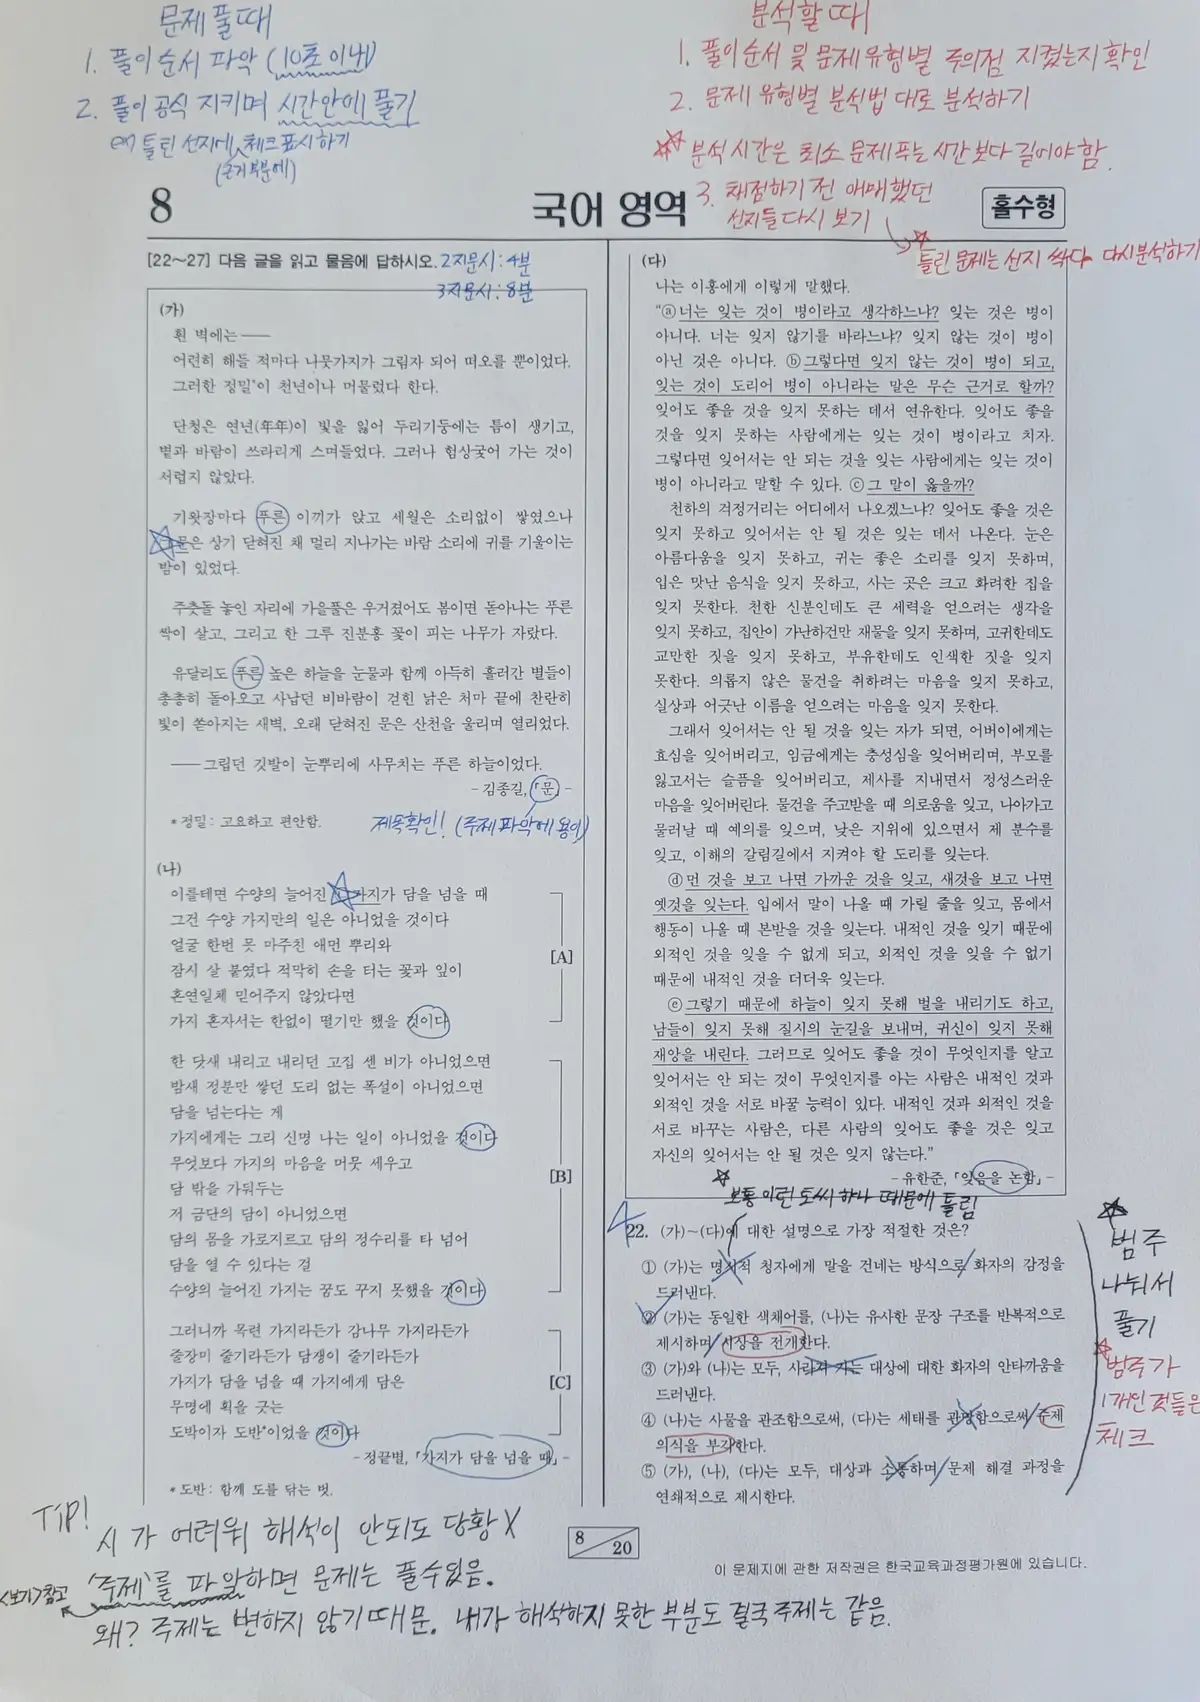 문제 풀때
1. 풀이순서 파악 (10초 이내)
2. 풀이 공식 지키며 시간안에 풀기
ex) 틀린 선지에 체크표시하기
(근거부분에)
분석할때
1. 풀이순서 및 문제유형별 주의점 지켰는지 확인
2. 문제 유형별 분석법 대로 분석하기
☆ 분석 시간은 최소 문제푸는 시간보다 길어야 함.
3. 채점하기 전 애매했던
선지들 다시 보기
☆ 틀린 문제는 선지 싹다 다시분석하기
8
국어 영역
홀수형
[22~27] 다음 글을 읽고 물음에 답하시오.
2지문시: 4분
3지문시: 8분
(가)
흰 벽에는──
어련히 해들 적마다 나뭇가지가 그림자 되어 떠오를 뿐이었다.
그러한 정밀*이 천년이나 머물렀다 한다.
단청은 연년(年年)이 빛을 잃어 두리기둥에는 틈이 생기고,
볕과 바람이 쓰라리게 스며들었다. 그러나 험상궂어 가는 것이
서럽지 않았다.
기왓장마다 푸른 이끼가 앉고 세월은 소리없이 쌓였으나
문은 상기 닫혀진 채 멀리 지나가는 바람 소리에 귀를 기울이는
밤이 있었다.
주춧돌 놓인 자리에 가을풀은 우거졌어도 봄이면 돋아나는 푸른
싹이 살고, 그리고 한 그루 진분홍 꽃이 피는 나무가 자랐다.
유달리도 푸른 높은 하늘을 눈물과 함께 아득히 흘러간 별들이
총총히 돌아오고 사납던 비바람이 걷힌 낡은 처마 끝에 찬란히
빛이 쏟아지는 새벽, 오래 닫혀진 문은 산천을 울리며 열리었다.
──그립던 깃발이 눈뿌리에 사무치는 푸른 하늘이었다.
- 김종길, 「문」 -
* 정밀: 고요하고 편안함.
제목확인! (주제 파악에 용이)
(나)
이를테면 수양의 늘어진 가지가 담을 넘을 때
그건 수양 가지만의 일은 아니었을 것이다
얼굴 한번 못 마주친 애먼 뿌리와
잠시 살 붙였다 적막히 손을 터는 꽃과 잎이
혼연일체 믿어주지 않았다면
가지 혼자서는 한없이 떨기만 했을 것이다
[A]
한 닷새 내리고 내리던 고집 센 비가 아니었으면
밤새 정분만 쌓던 도리 없는 폭설이 아니었으면
담을 넘는다는 게
가지에게는 그리 신명 나는 일이 아니었을 것이다
무엇보다 가지의 마음을 머뭇 세우고
담 밖을 가둬두는
저 금단의 담이 아니었으면
담의 몸을 가로지르고 담의 정수리를 타 넘어
담을 열 수 있다는 걸
수양의 늘어진 가지는 꿈도 꾸지 못했을 것이다
[B]
그러니까 목련 가지라든가 감나무 가지라든가
줄장미 줄기라든가 담쟁이 줄기라든가
가지가 담을 넘을 때 가지에게 담은
무명에 획을 긋는
도박이자 도반*이었을 것이다
[C]
- 정끝별, 「가지가 담을 넘을 때」 -
* 도반: 함께 도를 닦는 벗.
(다)
나는 이홍에게 이렇게 말했다.
“ⓐ너는 잊는 것이 병이라고 생각하느냐? 잊는 것은 병이
아니다. 너는 잊지 않기를 바라느냐? 잊지 않는 것이 병이
아닌 것은 아니다. ⓑ그렇다면 잊지 않는 것이 병이 되고,
잊는 것이 도리어 병이 아니라는 말은 무슨 근거로 할까?
잊어도 좋을 것을 잊지 못하는 데서 연유한다. 잊어도 좋을
것을 잊지 못하는 사람에게는 잊는 것이 병이라고 치자.
그렇다면 잊어서는 안 되는 것을 잊는 사람에게는 잊는 것이
병이 아니라고 말할 수 있다. ⓒ그 말이 옳을까?
천하의 걱정거리는 어디에서 나오겠느냐? 잊어도 좋을 것은
잊지 못하고 잊어서는 안 될 것은 잊는 데서 나온다. 눈은
아름다움을 잊지 못하고, 귀는 좋은 소리를 잊지 못하며,
입은 맛난 음식을 잊지 못하고, 사는 곳은 크고 화려한 집을
잊지 못한다. 천한 신분인데도 큰 세력을 얻으려는 생각을
잊지 못하고, 집안이 가난하건만 재물을 잊지 못하며, 고귀한데도
교만한 짓을 잊지 못하고, 부유한데도 인색한 짓을 잊지
못한다. 의롭지 않은 물건을 취하려는 마음을 잊지 못하고,
실상과 어긋난 이름을 얻으려는 마음을 잊지 못한다.
그래서 잊어서는 안 될 것을 잊는 자가 되면, 어버이에게는
효심을 잊어버리고, 임금에게는 충성심을 잊어버리며, 부모를
잃고서는 슬픔을 잊어버리고, 제사를 지내면서 정성스러운
마음을 잊어버린다. 물건을 주고받을 때 의로움을 잊고, 나아가고
물러날 때 예의를 잊으며, 낮은 지위에 있으면서 제 분수를
잊고, 이해의 갈림길에서 지켜야 할 도리를 잊는다.
ⓓ먼 것을 보고 나면 가까운 것을 잊고, 새것을 보고 나면
옛것을 잊는다. 입에서 말이 나올 때 가릴 줄을 잊고, 몸에서
행동이 나올 때 본받을 것을 잊는다. 내적인 것을 잊기 때문에
외적인 것을 잊을 수 없게 되고, 외적인 것을 잊을 수 없기
때문에 내적인 것을 더더욱 잊는다.
ⓔ그렇기 때문에 하늘이 잊지 못해 벌을 내리기도 하고,
남들이 잊지 못해 질시의 눈길을 보내며, 귀신이 잊지 못해
재앙을 내린다. 그러므로 잊어도 좋을 것이 무엇인지를 알고
잊어서는 안 되는 것이 무엇인지를 아는 사람은 내적인 것과
외적인 것을 서로 바꿀 능력이 있다. 내적인 것과 외적인 것을
서로 바꾸는 사람은, 다른 사람의 잊어도 좋을 것은 잊고
자신의 잊어서는 안 될 것은 잊지 않는다.”
- 유한준, 「잊음을 논함」 -
☆ 보통 이런 토씨 하나 때문에 틀림
22. (가)~(다)에 대한 설명으로 가장 적절한 것은?
① (가)는 명시적 청자에게 말을 건네는 방식으로 화자의 감정을
드러낸다.
② (가)는 동일한 색채어를, (나)는 유사한 문장 구조를 반복적으로
제시하며 시상을 전개한다.
③ (가)와 (나)는 모두, 사라져 가는 대상에 대한 화자의 안타까움을
드러낸다.
④ (나)는 사물을 관조함으로써, (다)는 세태를 관망함으로써 주제
의식을 부각한다.
⑤ (가), (나), (다)는 모두, 대상과 소통하며 문제 해결 과정을
연쇄적으로 제시한다.
☆ 범주
나눠서
풀기
☆ 범주가
1개인 것들은
체크
TIP!
시가 어려워 해석이 안되도 당황 X
<보기>참고
'주제'를 파악하면 문제는 풀수있음.
왜? 주제는 변하지 않기때문. 내가 해석하지 못한 부분도 결국 주제는 같음.
8
20
이 문제지에 관한 저작권은 한국교육과정평가원에 있습니다.